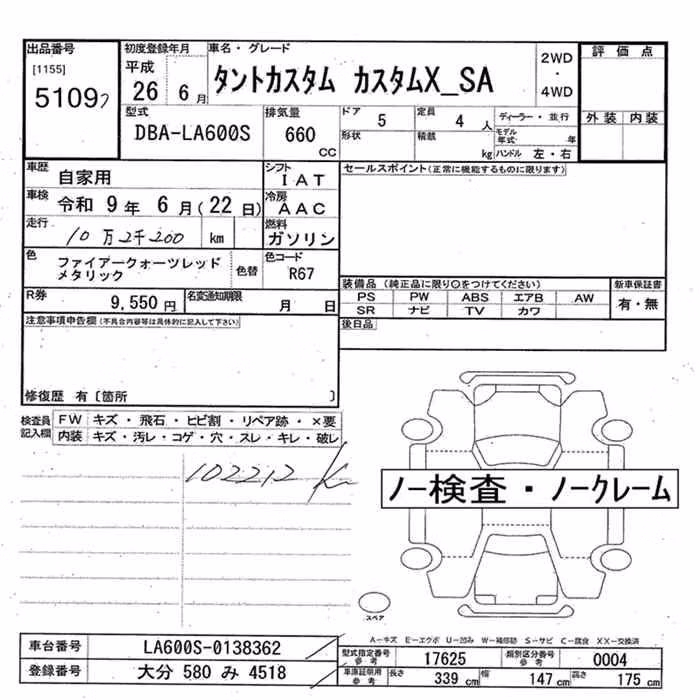 出品番号
[1155]
5109ﾌ
初度登録年月
平成
26 6月
車名・グレード
タントカスタム カスタムX_SA
2WD
・
4WD
評価点
外装 内装
型式
DBA-LA600S
排気量
660
CC
ドア
5
定員
4 人
ディーラー・並行
形状
積載
kg
モデル年式 年
ハンドル 左・右
車歴
自家用
シフト
IAT
セールスポイント(正常に機能するものに限ります)
車検
令和 9年 6月(22日)
冷房
AAC
走行
10万2千200 km
燃料
ガソリン
色
ファイアークォーツレッド
メタリック
色替
色コード
R67
装備品(純正品に限り○をつけてください)
PS PW ABS エアB AW
SR ナビ TV カワ
新車保証書
有・無
R券
9,550円
名変通知期限
月 日
後日品
注意事項申告欄(不具合内容等は具体的に記入して下さい)
修復歴 有〔箇所 〕
検査員
記入欄
FW キズ・飛石・ヒビ割・リペア跡・×要
内装 キズ・汚レ・コゲ・穴・スレ・キレ・破レ
102212 K
ノー検査・ノークレーム
スペア
A-キズ E-エクボ U-凹み W-補修跡 S-サビ C-腐食 XX-交換済
車台番号
LA600S-0138362
型式指定番号
参考
17625
類別区分番号
参考
0004
登録番号
大分 580 み 4518
車庫証明用
参考
長さ
339 cm
幅
147 cm
高さ
175 cm